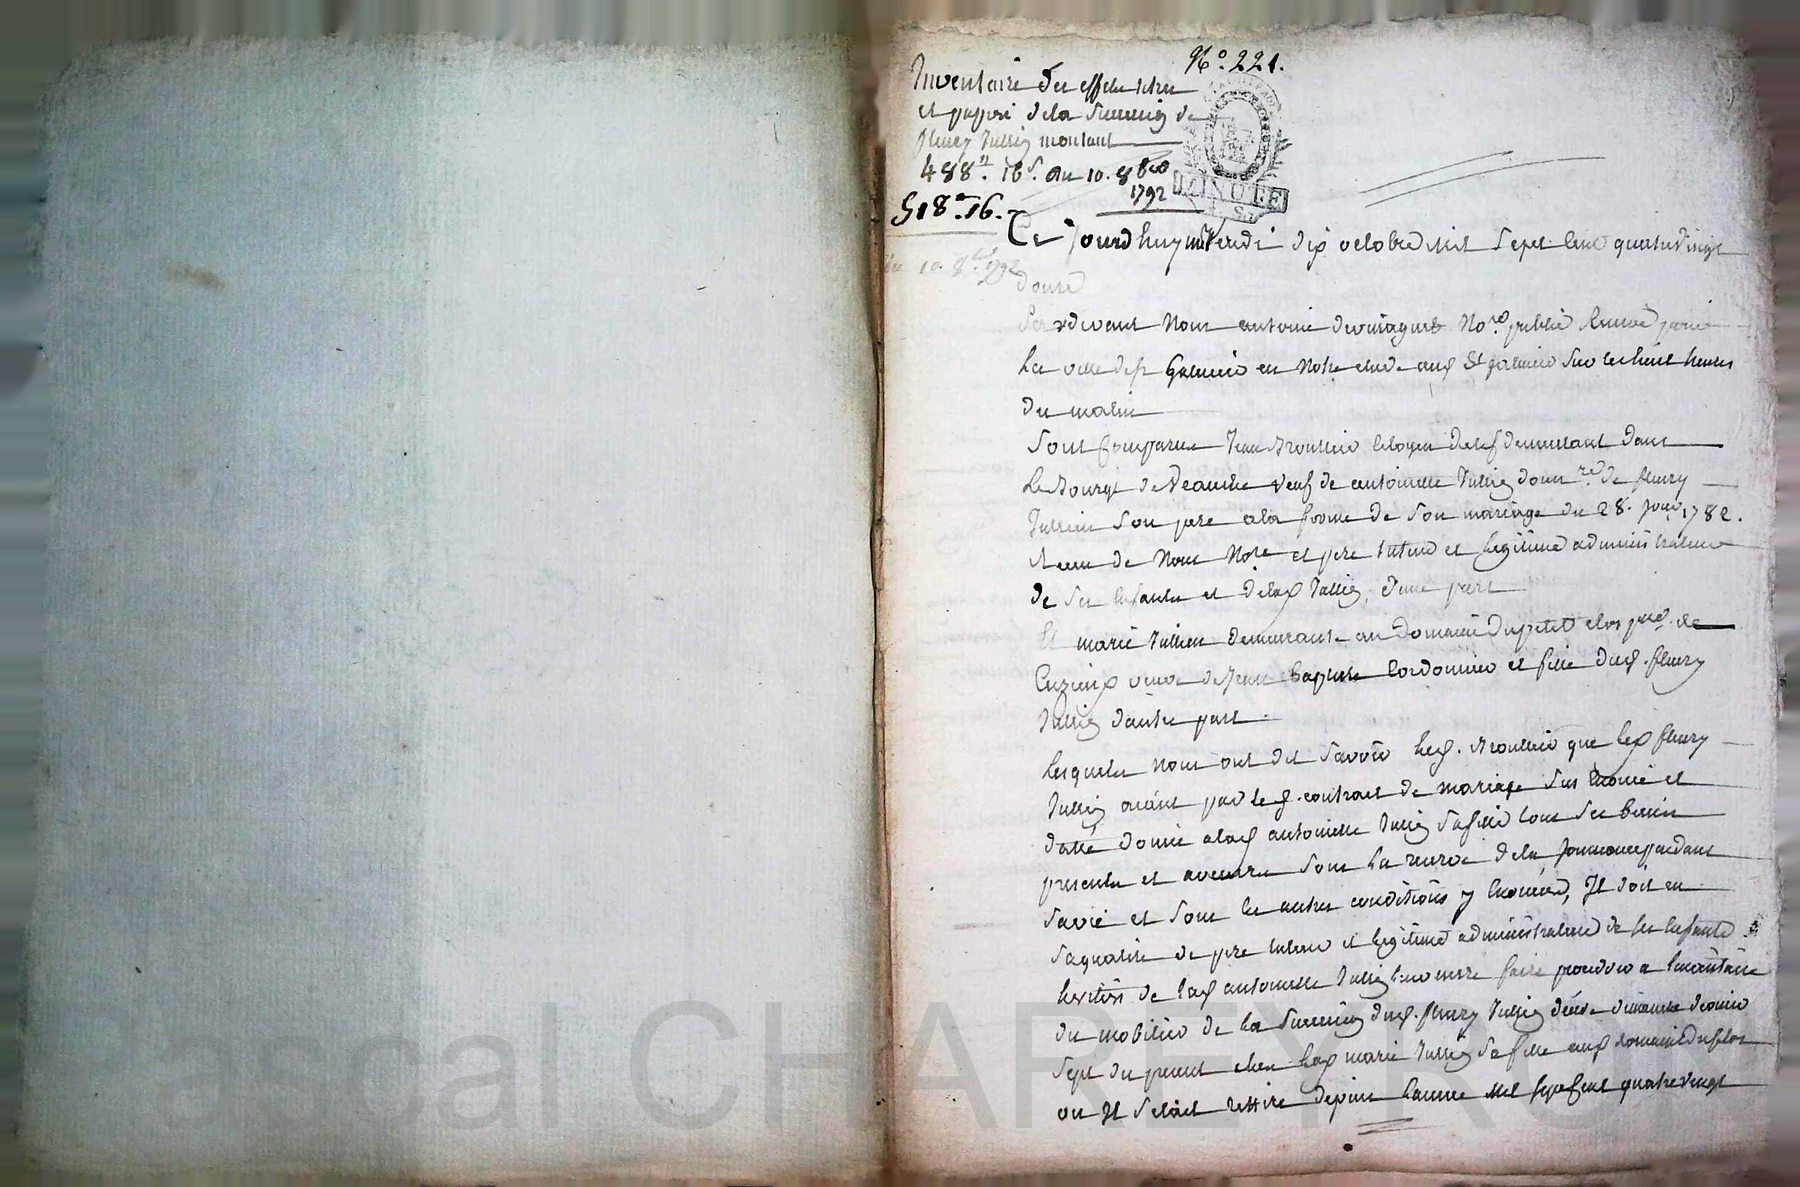 N.º 221.
Inventaire des effets titres
et papiers de la Succession de
fleury Jullien montant
488.# 16.s du 10. 8bre
1792
518.# 16.
MINUTE
du 10. 8bre 1792
Ce jourdhuy mercredi dix octobre mil sept cent quatrevingt
douze
Pardevant Nous antoine No.re public pour
La ville de st Galmier en Notre etude aud St galmier sur les huit heures
du matin
Sont Comparus Jean citoyen demeurant dans
Le Bourg de Veauche veuf de antoinette Jullien donat.re de fleury
Jullien son pere a la forme de son mariage du 28. 1782.
recu de Nous No.re et pere tuteur et legitime administrateur
de ses Enfants et de lad Jullien, d'une part
Et marie Jullien demeurante au Domaine du petit clos p.sse de
Cuzieux veuve de Jean Baptiste Cordonnier et fille dud. fleury
Jullien d'autre part.
Lesquels Nous ont dit savoir led. que led fleury
Jullien ayant par led. contrat de mariage sus Enoncé et
datté donné a lad antoinette Jullien sa fille tous ses biens
presents et avenirs sous la reserve de la jouissance pendant
sa vie et sous les autres conditions y Enoncées, Il doit en
sa qualité de pere tuteur et legitime administrateur de ses Enfants
heritiers de lad antoinette Jullien leur mere faire proceder a l'inventaire
du mobilier de la Succession dud. fleury Jullien décédé dimanche dernier
sept du present chez lad marie Jullien sa fille aud domaine du clos
ou Il s'etait rettiré depuis l'année mil sept cent quatrevingt
Pascal CHAREYRON